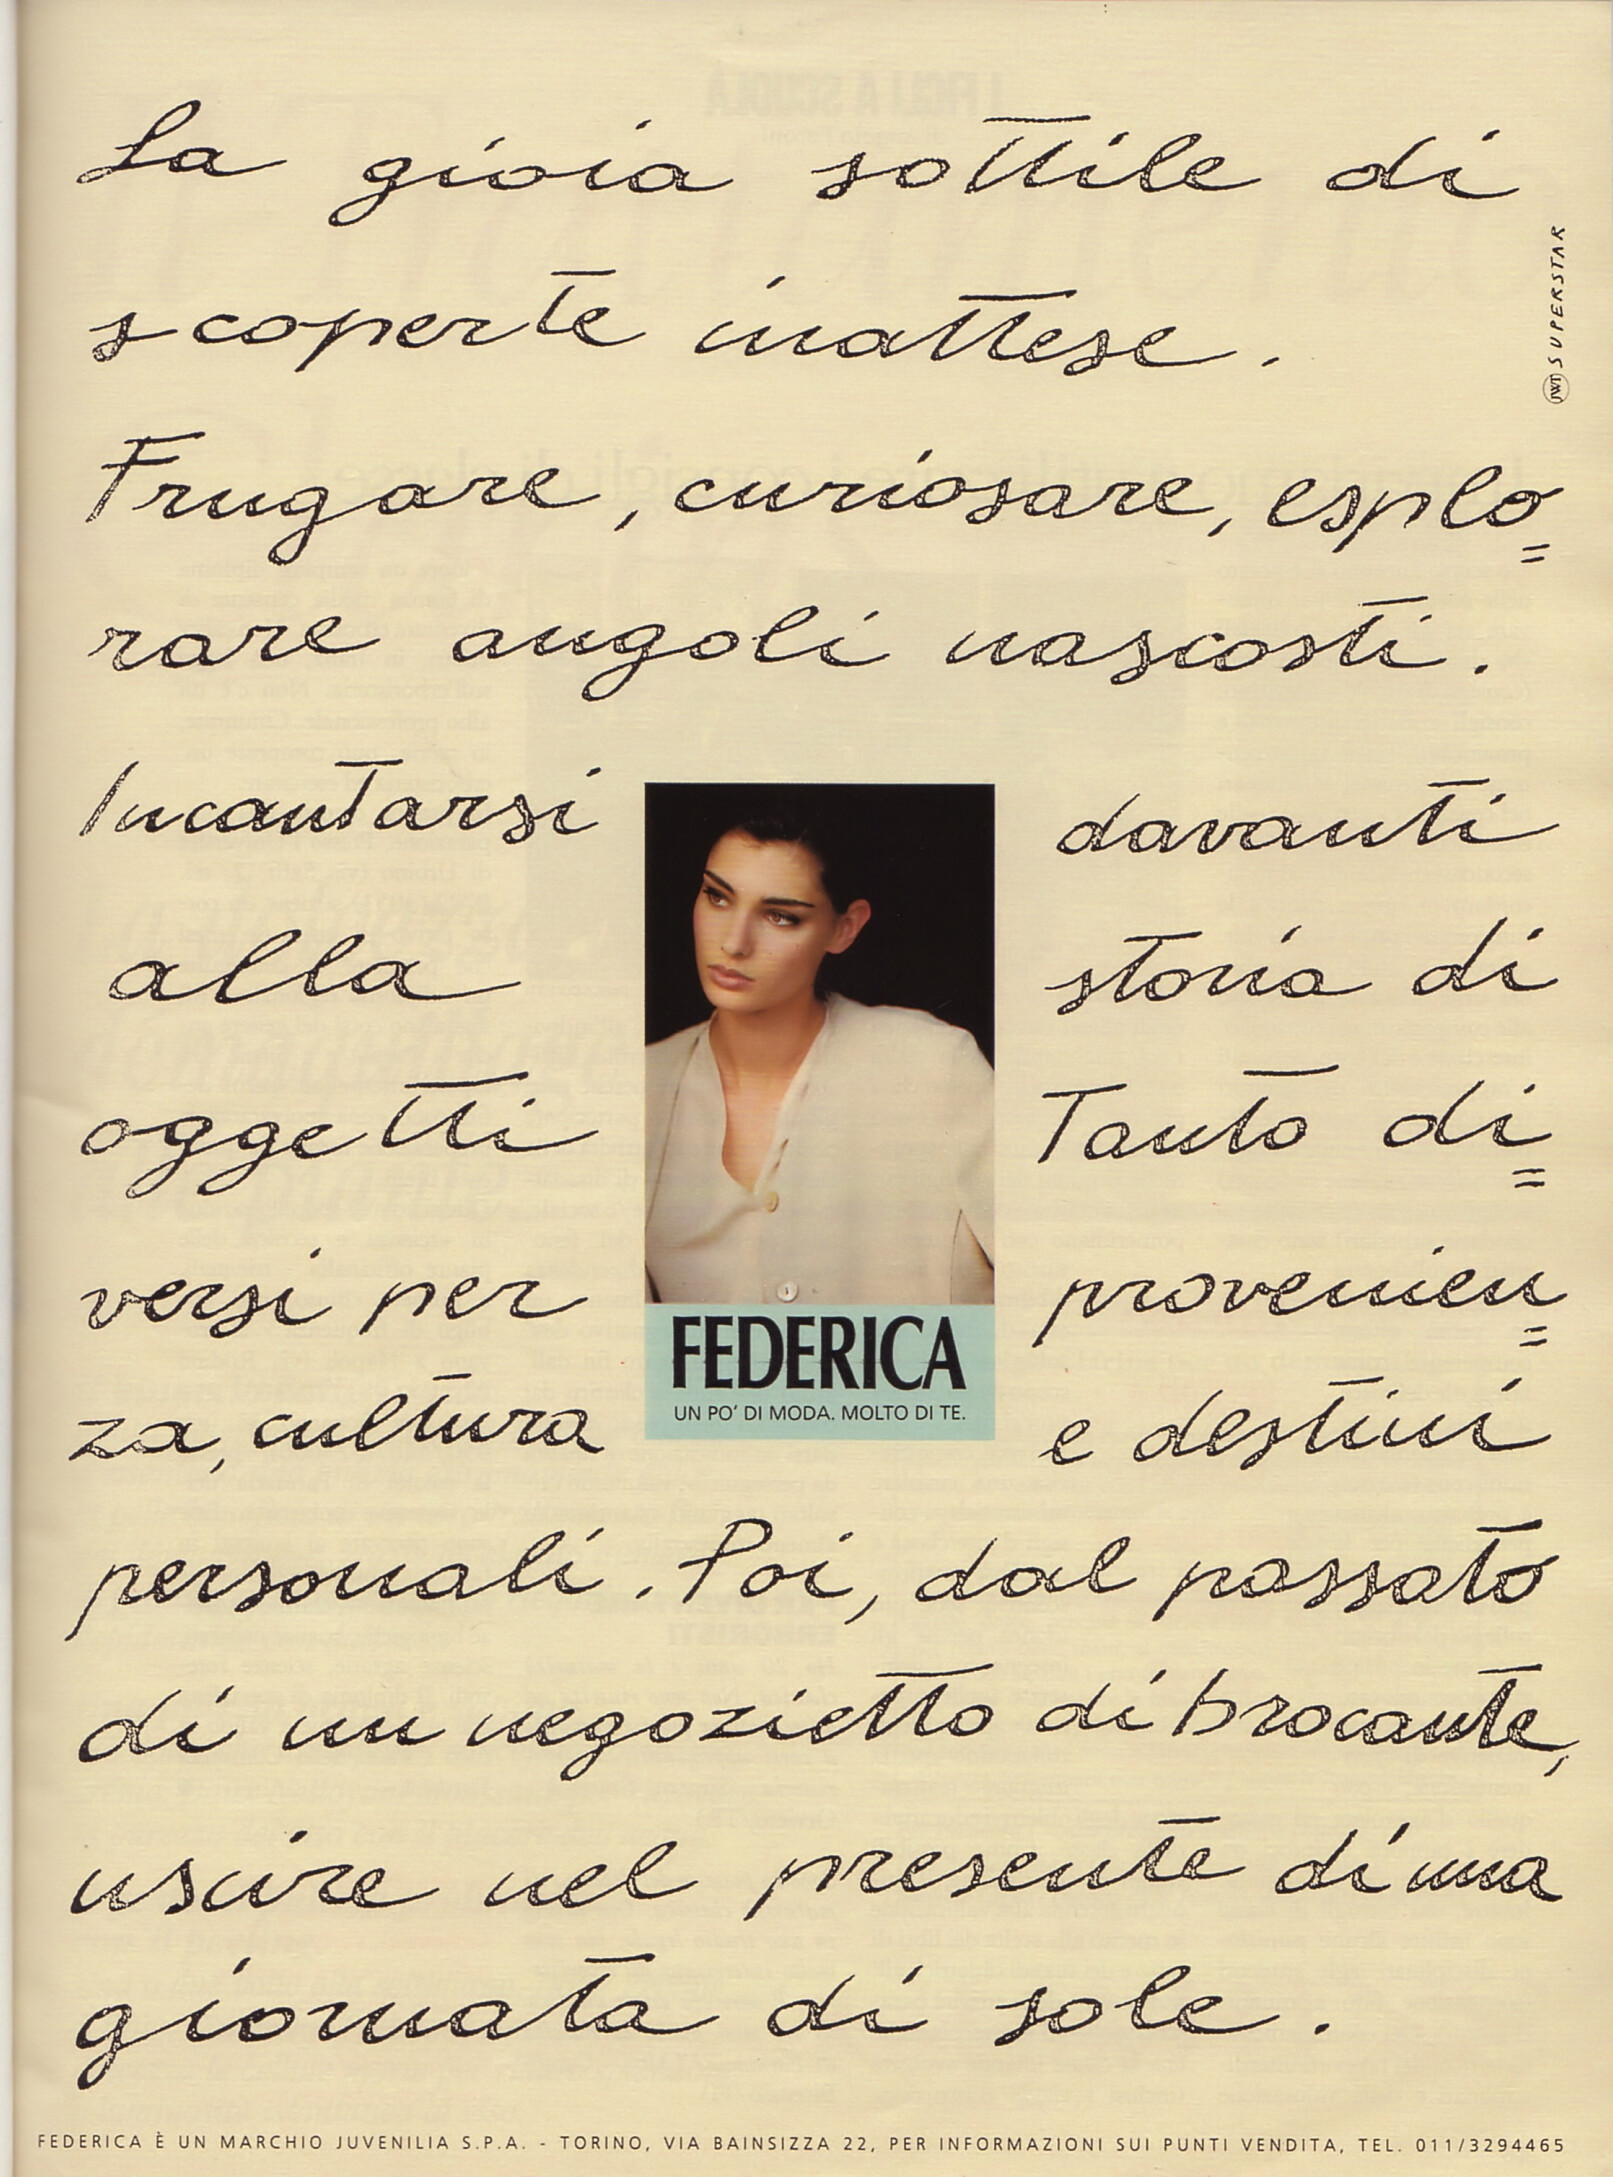 La gioia sottile di
scoperte inattese.
Frugare, curiosare, esplo=
rare angoli nascosti.
Incantarsi davanti
alla storia di
oggetti tanto di=
versi per provenien=
za, cultura e destini
personali. Poi, dal passato
di un negozietto di brocante,
uscire nel presente di una
giornata di sole.
FEDERICA
UN PO' DI MODA. MOLTO DI TE.
JWT SUPERSTAR
FEDERICA È UN MARCHIO JUVENILIA S.P.A. - TORINO, VIA BAINSIZZA 22, PER INFORMAZIONI SUI PUNTI VENDITA, TEL. 011/3294465